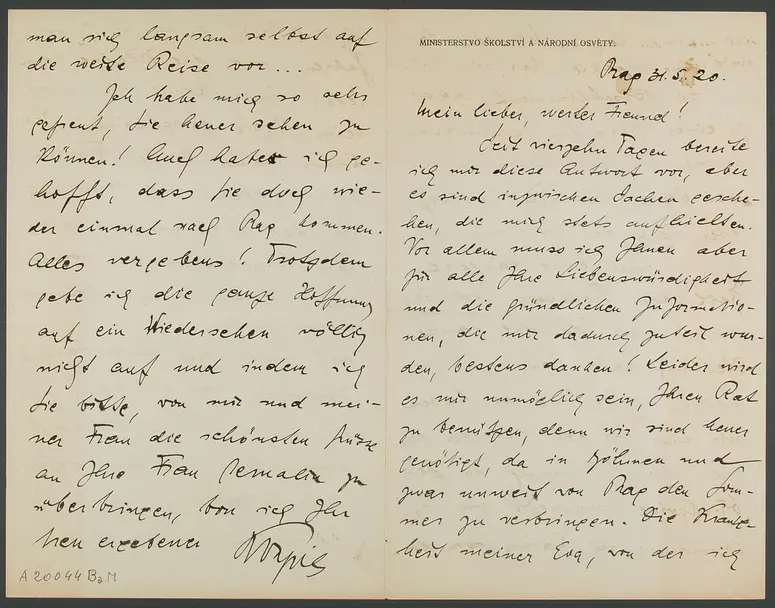 MINISTERSTVO ŠKOLSTVÍ A NÁRODNÍ OSVĚTY.
Prag 31.5.20.
Mein lieber, werter Freund!
Seit vierzehn Tagen bereite
ich mir diese Antwort vor, aber
es sind inzwischen Sachen gesche-
hen, die mich stets aufhielten.
Vor allem muss ich Ihnen aber
für alle Ihre Liebenswürdigkeit
und die gründlichen Informatio-
nen, die mir dadurch zuteil wur-
den, bestens danken! Leider wird
es mir unmöglich sein, Ihren Rat
zu benützen, denn wir sind heuer
genötigt, da in Böhmen und
zwar unweit von Prag den Som-
mer zu verbringen. Die Krank-
heit meiner Eva, von der ich
man sich langsam selbst auf
die weite Reise vor...
Ich habe mich so sehr
gefreut, Sie heuer sehen zu
können! Auch habe ich ge-
hofft, dass Sie doch wie-
der einmal nach Prag kommen.
Alles vergebens! Trotzdem
gebe ich die ganze Hoffnung
auf ein Wiedersehen völlig
nicht auf und indem ich
Sie bitte, von mir und mei-
ner Frau die schönsten Grüsse
an Ihre Frau Gemalin zu
überbringen, bin ich Ihr
Ihnen ergebener Kvapil
A 20044 BaM